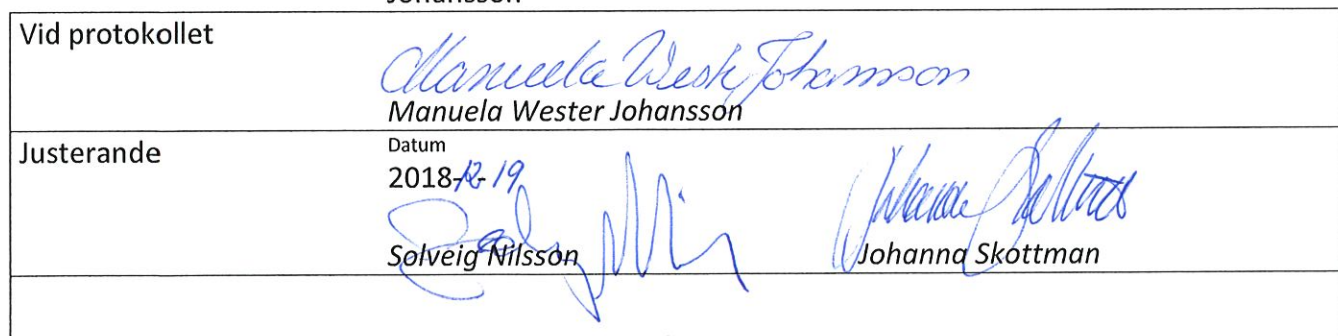 Johansson
Vid protokollet
Manuela Wester Johansson
Manuela Wester Johansson
Justerande
Datum
2018-12-19
Solveig Nilsson
Johanna Skottman